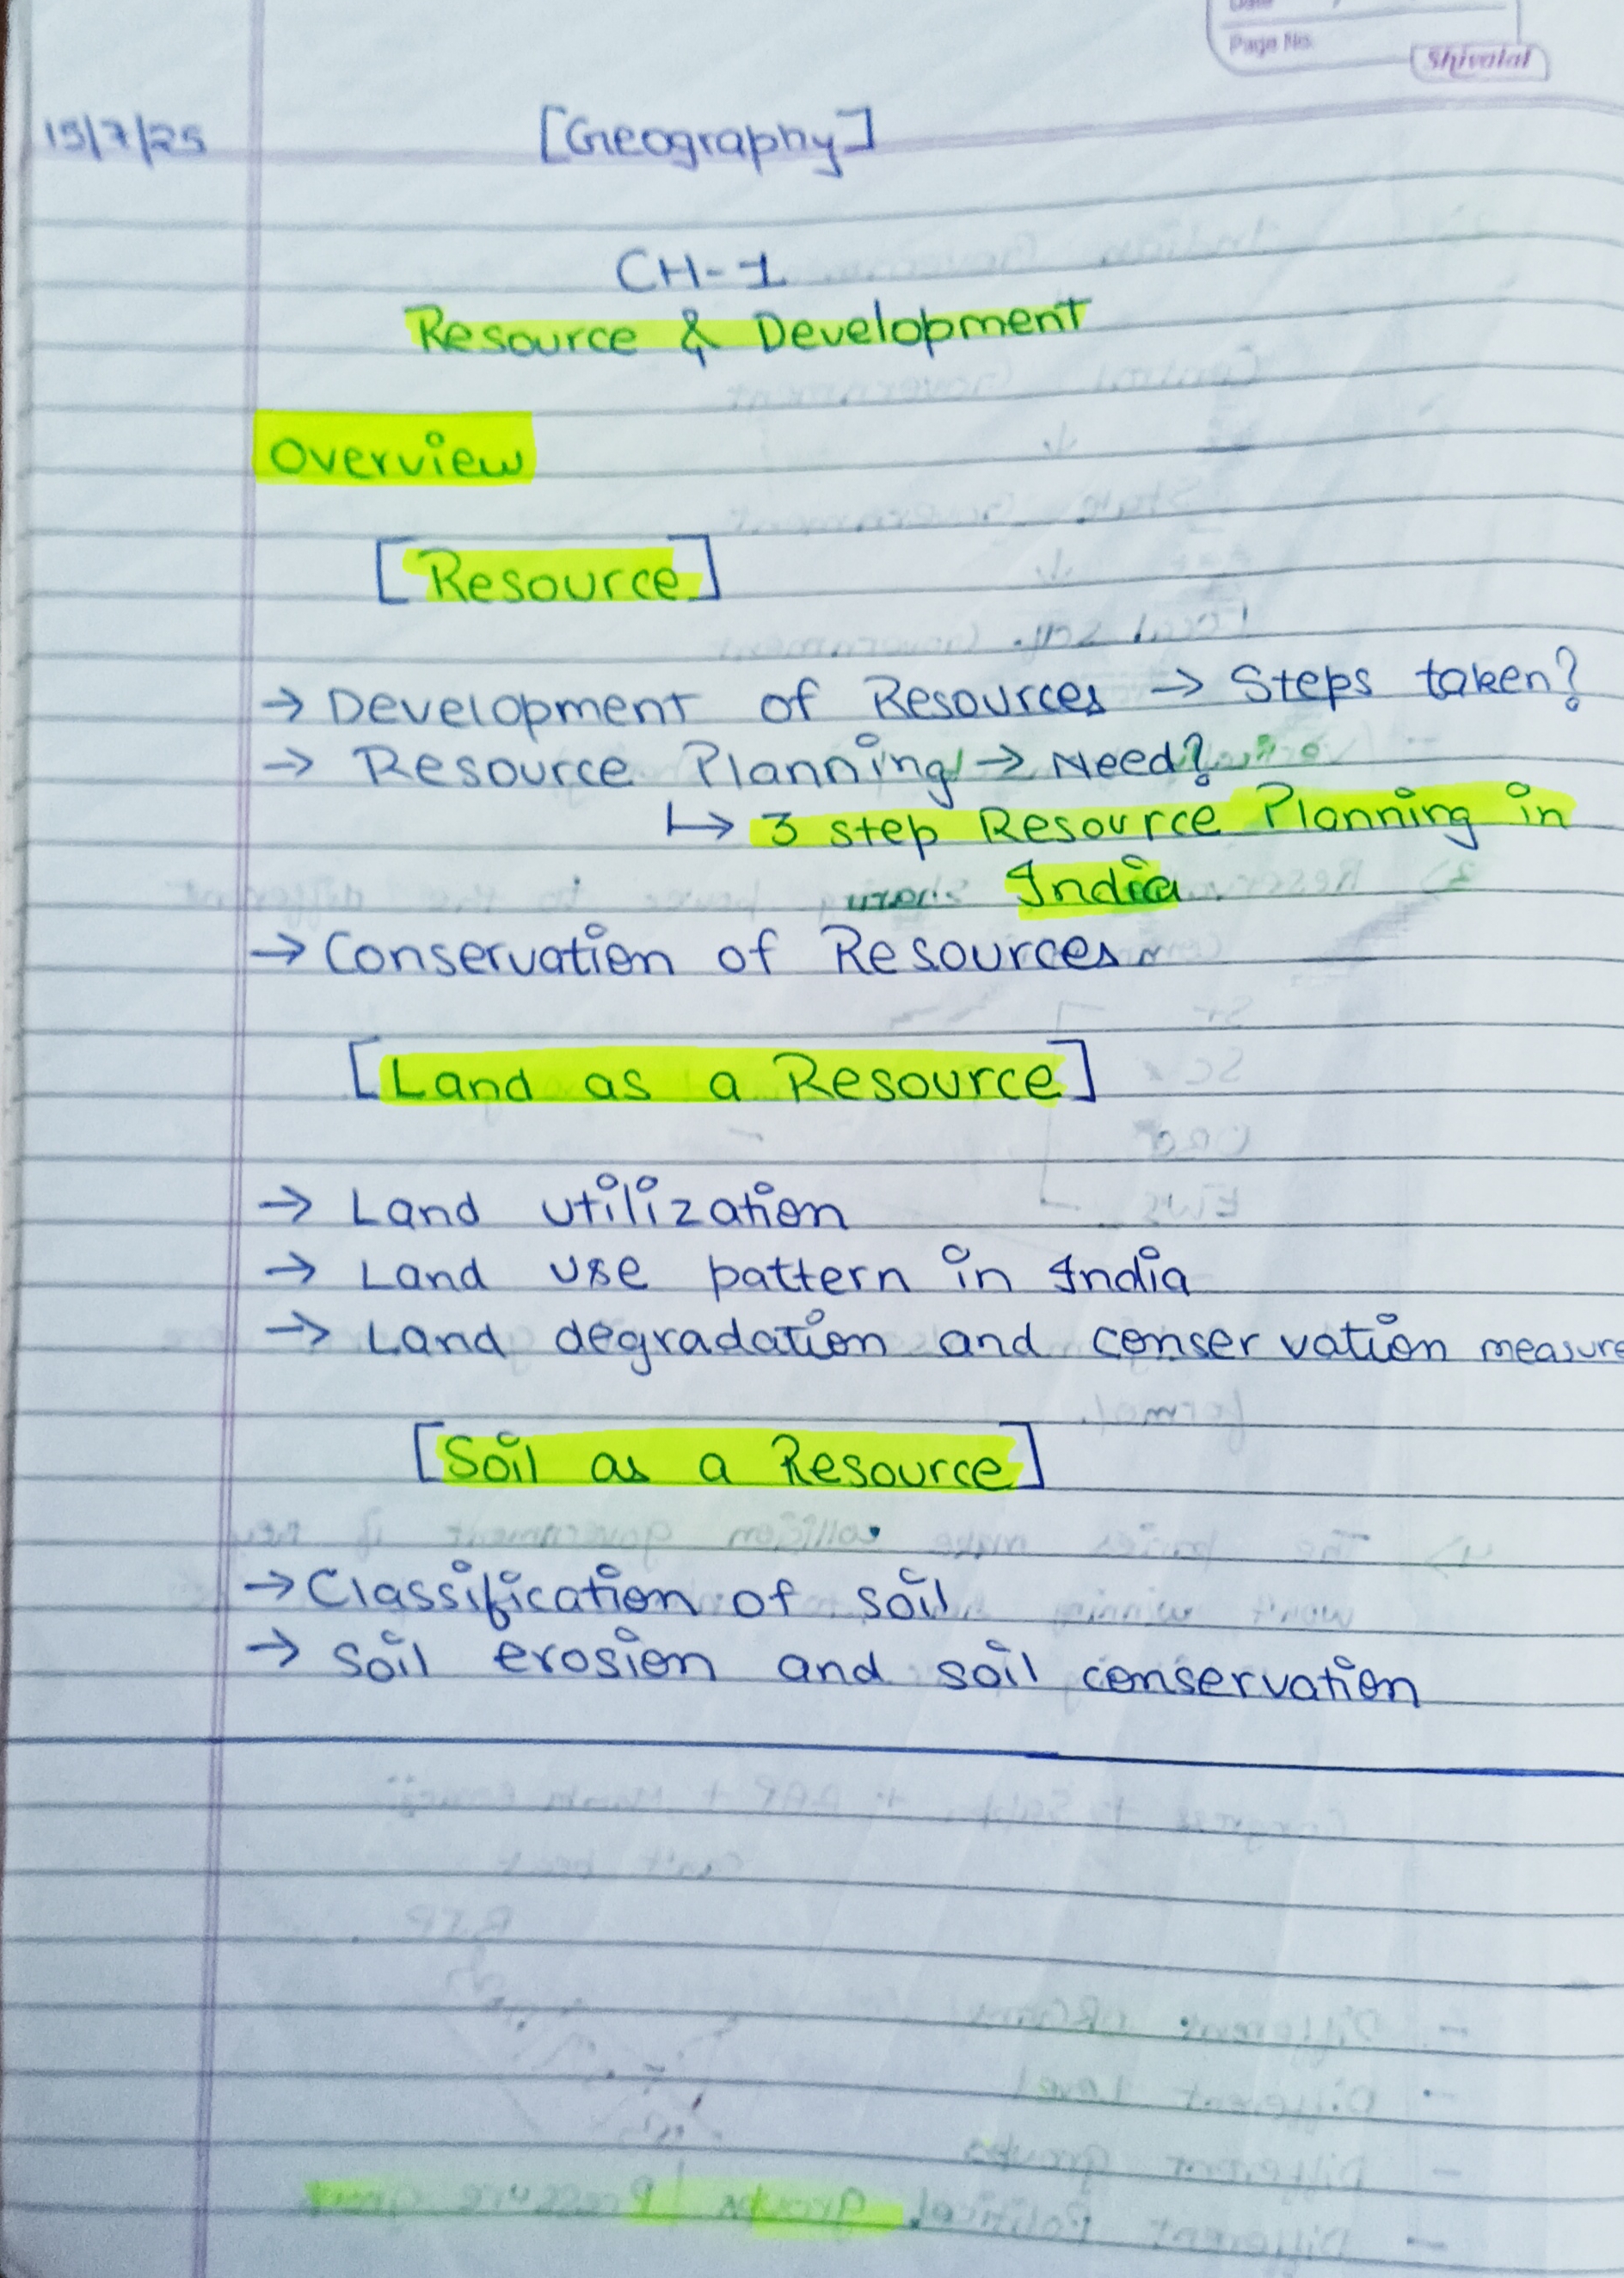 Page No.
Shivalal
15/7/25
[Geography]
CH-1
Resource & Development
Overview
[Resource]
→ Development of Resources → Steps taken?
→ Resource Planning → Need?
↳ 3 step Resource Planning in
India
→ Conservation of Resources
[Land as a Resource]
→ Land utilization
→ Land use pattern in India
→ Land degradation and conservation measure
[Soil as a Resource]
→ Classification of soil
→ Soil erosion and soil conservation